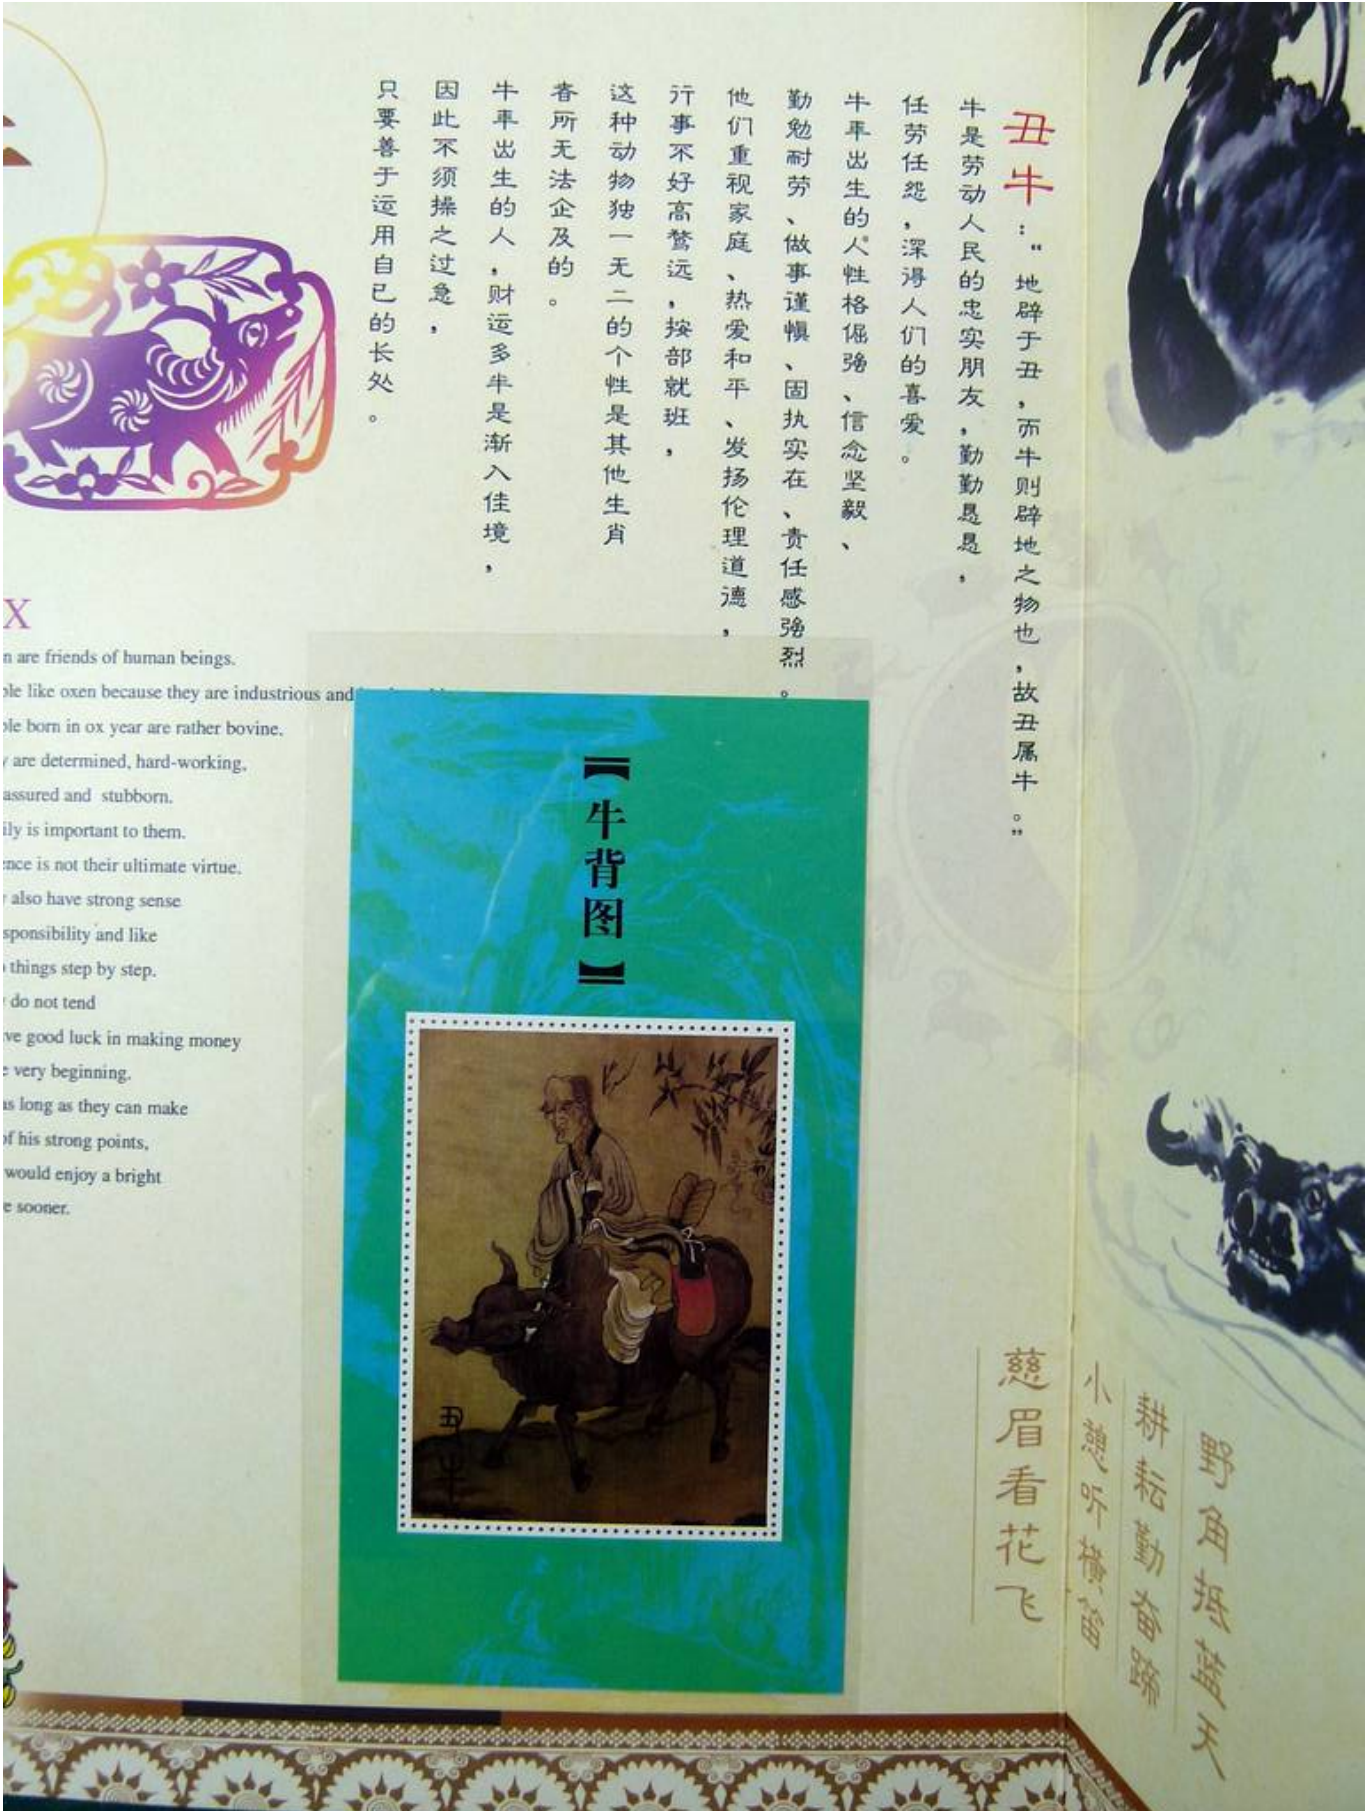 丑牛：“地辟于丑，而牛则辟地之物也，故丑属牛。”
牛是劳动人民的忠实朋友，勤勤恳恳，
任劳任怨，深得人们的喜爱。
牛年出生的人性格倔强、信念坚毅、
勤勉耐劳、做事谨慎、固执实在、责任感强烈。
他们重视家庭、热爱和平、发扬伦理道德，
行事不好高骛远，按部就班，
这种动物独一无二的个性是其他生肖
者所无法企及的。
牛年出生的人，财运多半是渐入佳境，
因此不须操之过急，
只要善于运用自己的长处。
X
are friends of human beings.
like oxen because they are industrious and
born in ox year are rather bovine.
are determined, hard-working,
assured and stubborn.
is important to them.
is not their ultimate virtue.
also have strong sense
and like
things step by step.
do not tend
good luck in making money
very beginning.
as long as they can make
of his strong points,
would enjoy a bright
sooner.
【牛背图】
丑牛
野角抵蓝天
耕耘勤奋蹄
小憩听横笛
慈眉看花飞